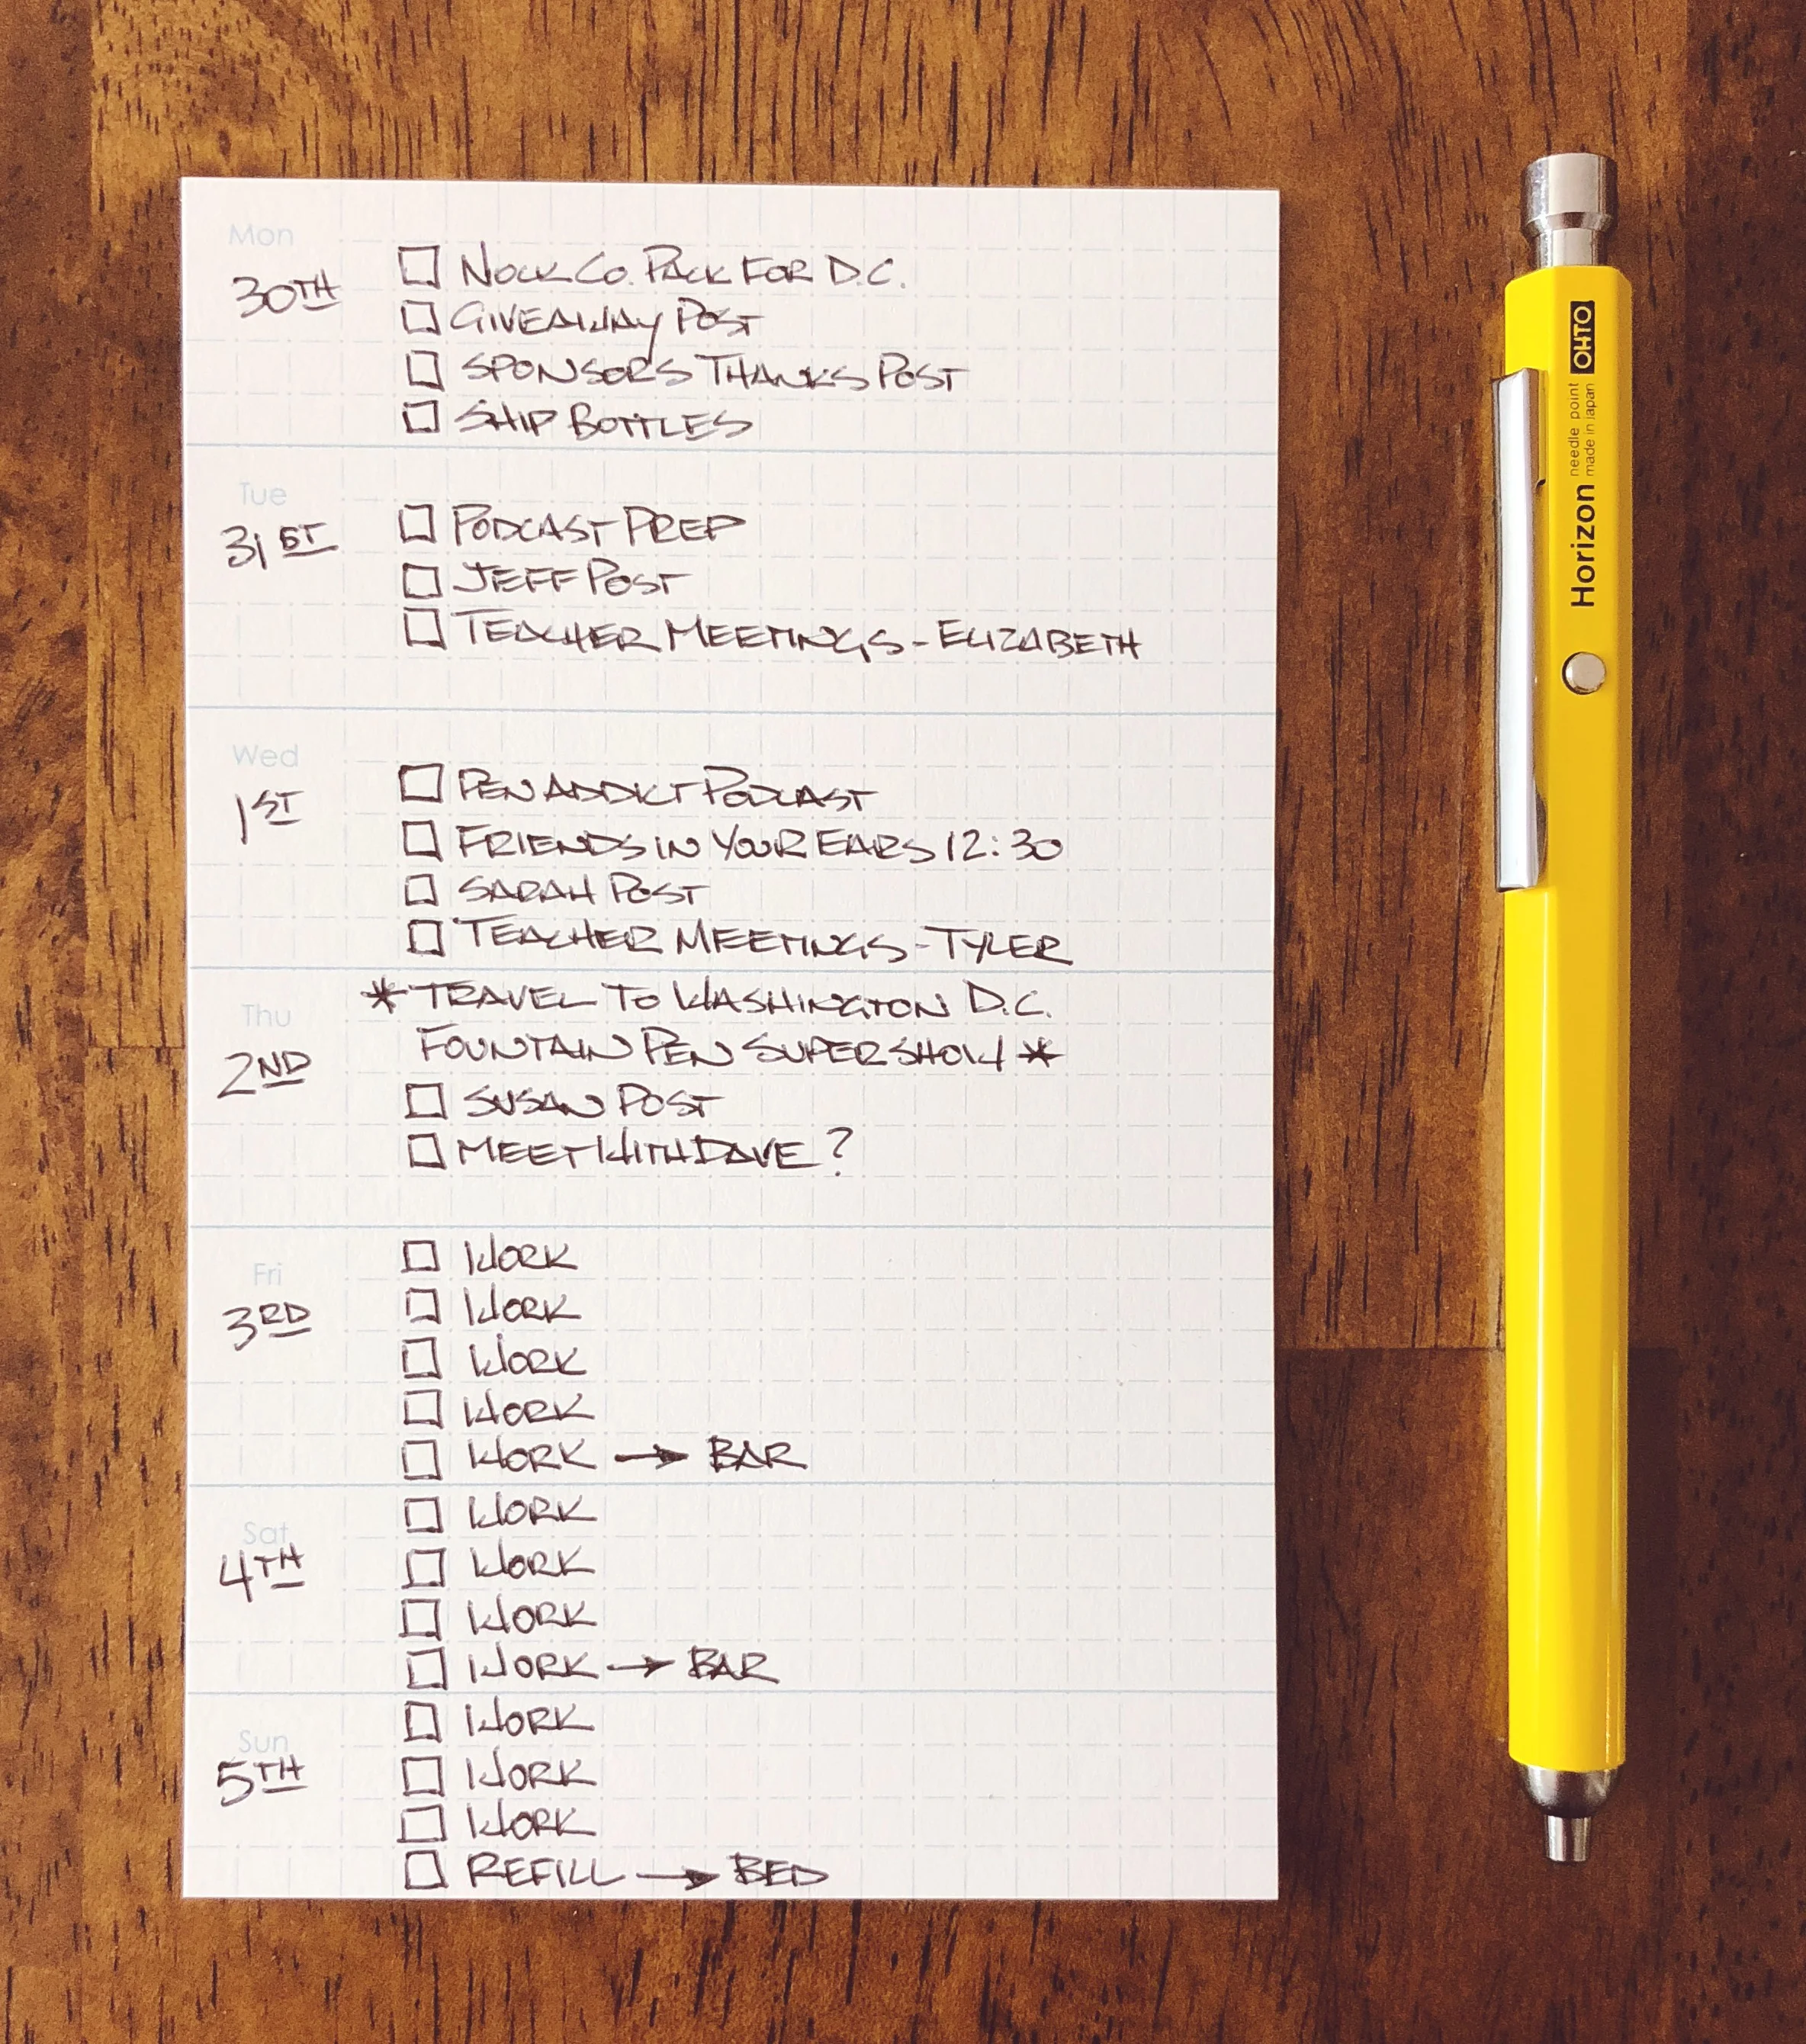 Mon
30TH
□ NOCK CO. PACK FOR D.C.
□ GIVEAWAY POST
□ SPONSORS THANKS POST
□ SHIP BOTTLES
Tue
31ST
□ PODCAST PREP
□ JEFF POST
□ TEACHER MEETINGS - ELIZABETH
Wed
1ST
□ PEN ADDICT PODCAST
□ FRIENDS IN YOUR EARS 12:30
□ SARAH POST
□ TEACHER MEETINGS - TYLER
Thu
2ND
* TRAVEL TO WASHINGTON D.C.
FOUNTAIN PEN SUPERSHOW *
□ SUSAN POST
□ MEET WITH DAVE?
Fri
3RD
□ WORK
□ WORK
□ WORK
□ WORK
□ WORK → BAR
Sat
4TH
□ WORK
□ WORK
□ WORK
□ WORK → BAR
Sun
5TH
□ WORK
□ WORK
□ WORK
□ REFILL → BED
OHTO
Horizon needle point
made in Japan